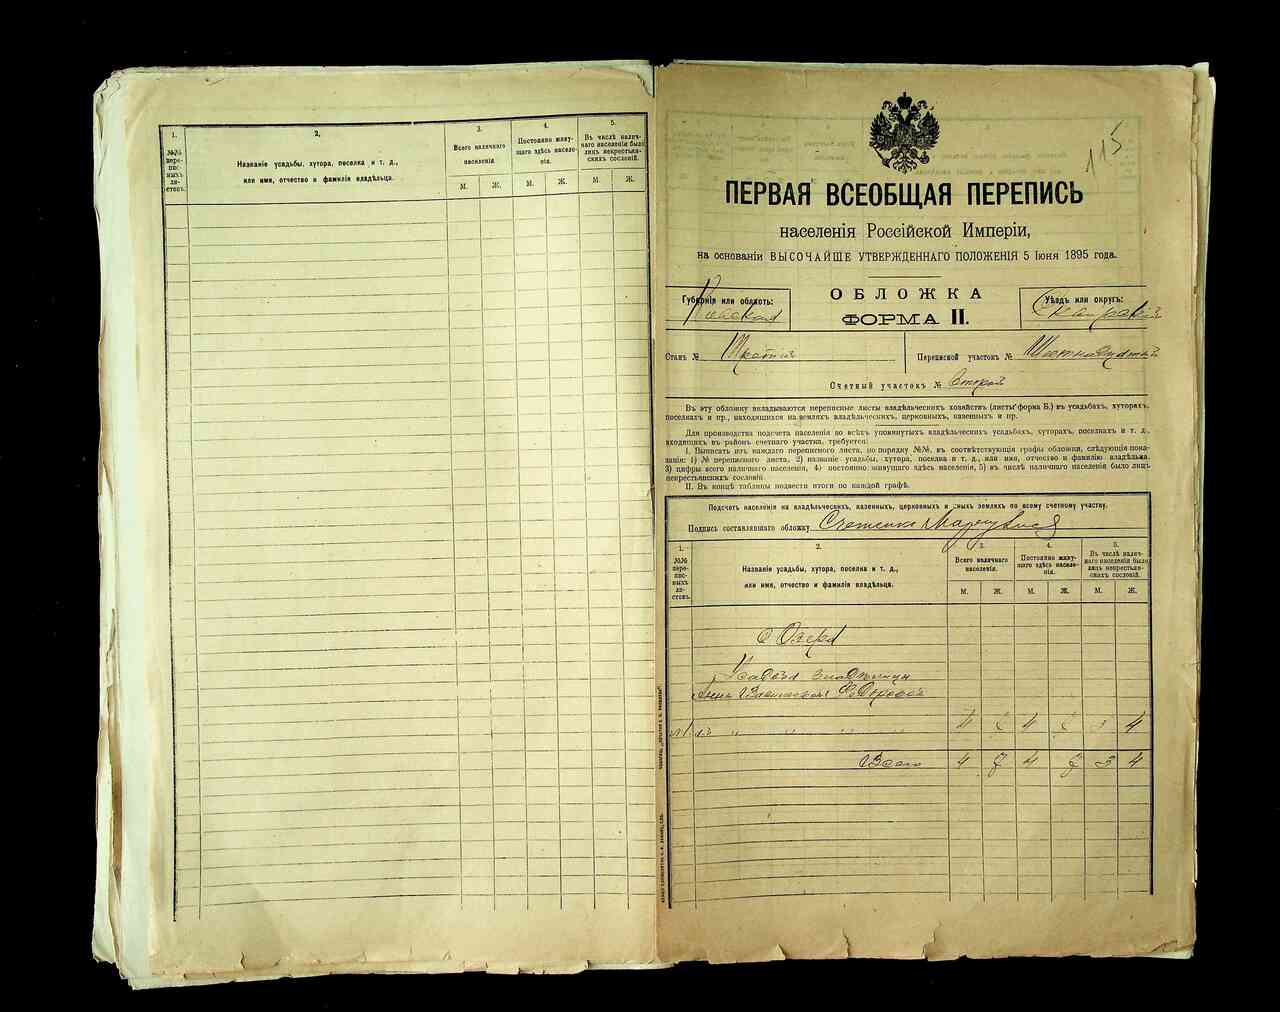 1.
2.
3.
4.
5.
№№ пере-
пис-
ныхъ
ли-
стовъ.
Названіе усадьбы, хутора, поселка и т. д.,
или имя, отчество и фамилія владѣльца.
Всего наличнаго
населенія
Постоянно живу-
щаго здѣсь населе-
нія.
Въ числѣ налич-
наго населенія было
лицъ некрестья-
скихъ сословій.
М. Ж. М. Ж. М. Ж.
115
ПЕРВАЯ ВСЕОБЩАЯ ПЕРЕПИСЬ
населенія Россійской Имперіи,
на основаніи ВЫСОЧАЙШЕ УТВЕРЖДЕННАГО ПОЛОЖЕНІЯ 5 Іюня 1895 года.
Губернія или область:
Кіевская
ОБЛОЖКА
ФОРМА II.
Уѣздъ или округъ:
Сквирскій
Станъ №
Переписной участокъ №
Счетный участокъ № Второй
Въ эту обложку вкладываются переписные листы владѣльческихъ хозяйствъ (листы форма Б.) въ усадьбахъ, хуторахъ,
поселкахъ и пр., находящихся на земляхъ владѣльческихъ, церковныхъ, казенныхъ и пр.
Для производства подсчета населенія во всѣхъ упомянутыхъ владѣльческихъ усадьбахъ, хуторахъ, поселкахъ и т. д.,
входящихъ въ районъ счетнаго участка, требуется:
I. Выписать изъ каждаго переписного листа, по порядку №№, въ соотвѣтствующія графы обложки, слѣдующія пока-
занія: 1) № переписного листа, 2) названіе усадьбы, хутора, поселка и т. д., или имя, отчество и фамилію владѣльца
3) цифры всего наличнаго населенія, 4) постоянно живущаго здѣсь населенія, 5) въ числѣ наличнаго населенія было лицъ
некрестьянскихъ сословій.
II. Въ концѣ таблицы подвести итоги по каждой графѣ.
Подсчетъ населенія на владѣльческихъ, казенныхъ, церковныхъ и иныхъ земляхъ по всему счетному участку.
Подпись составлявшаго обложку
1.
2.
3.
4.
5.
№№
пере-
пис-
ныхъ
ли-
стовъ.
Названіе усадьбы, хутора, поселка и т. д.,
или имя, отчество и фамилія владѣльца.
Всего наличнаго
населенія.
Постоянно живу-
щаго здѣсь населе-
нія.
Въ числѣ налич-
наго населенія было
лицъ некрестья-
скихъ сословій.
М. Ж. М. Ж. М. Ж.
Анна
4 4 3 4
Всего 4 7 4 7 3 4